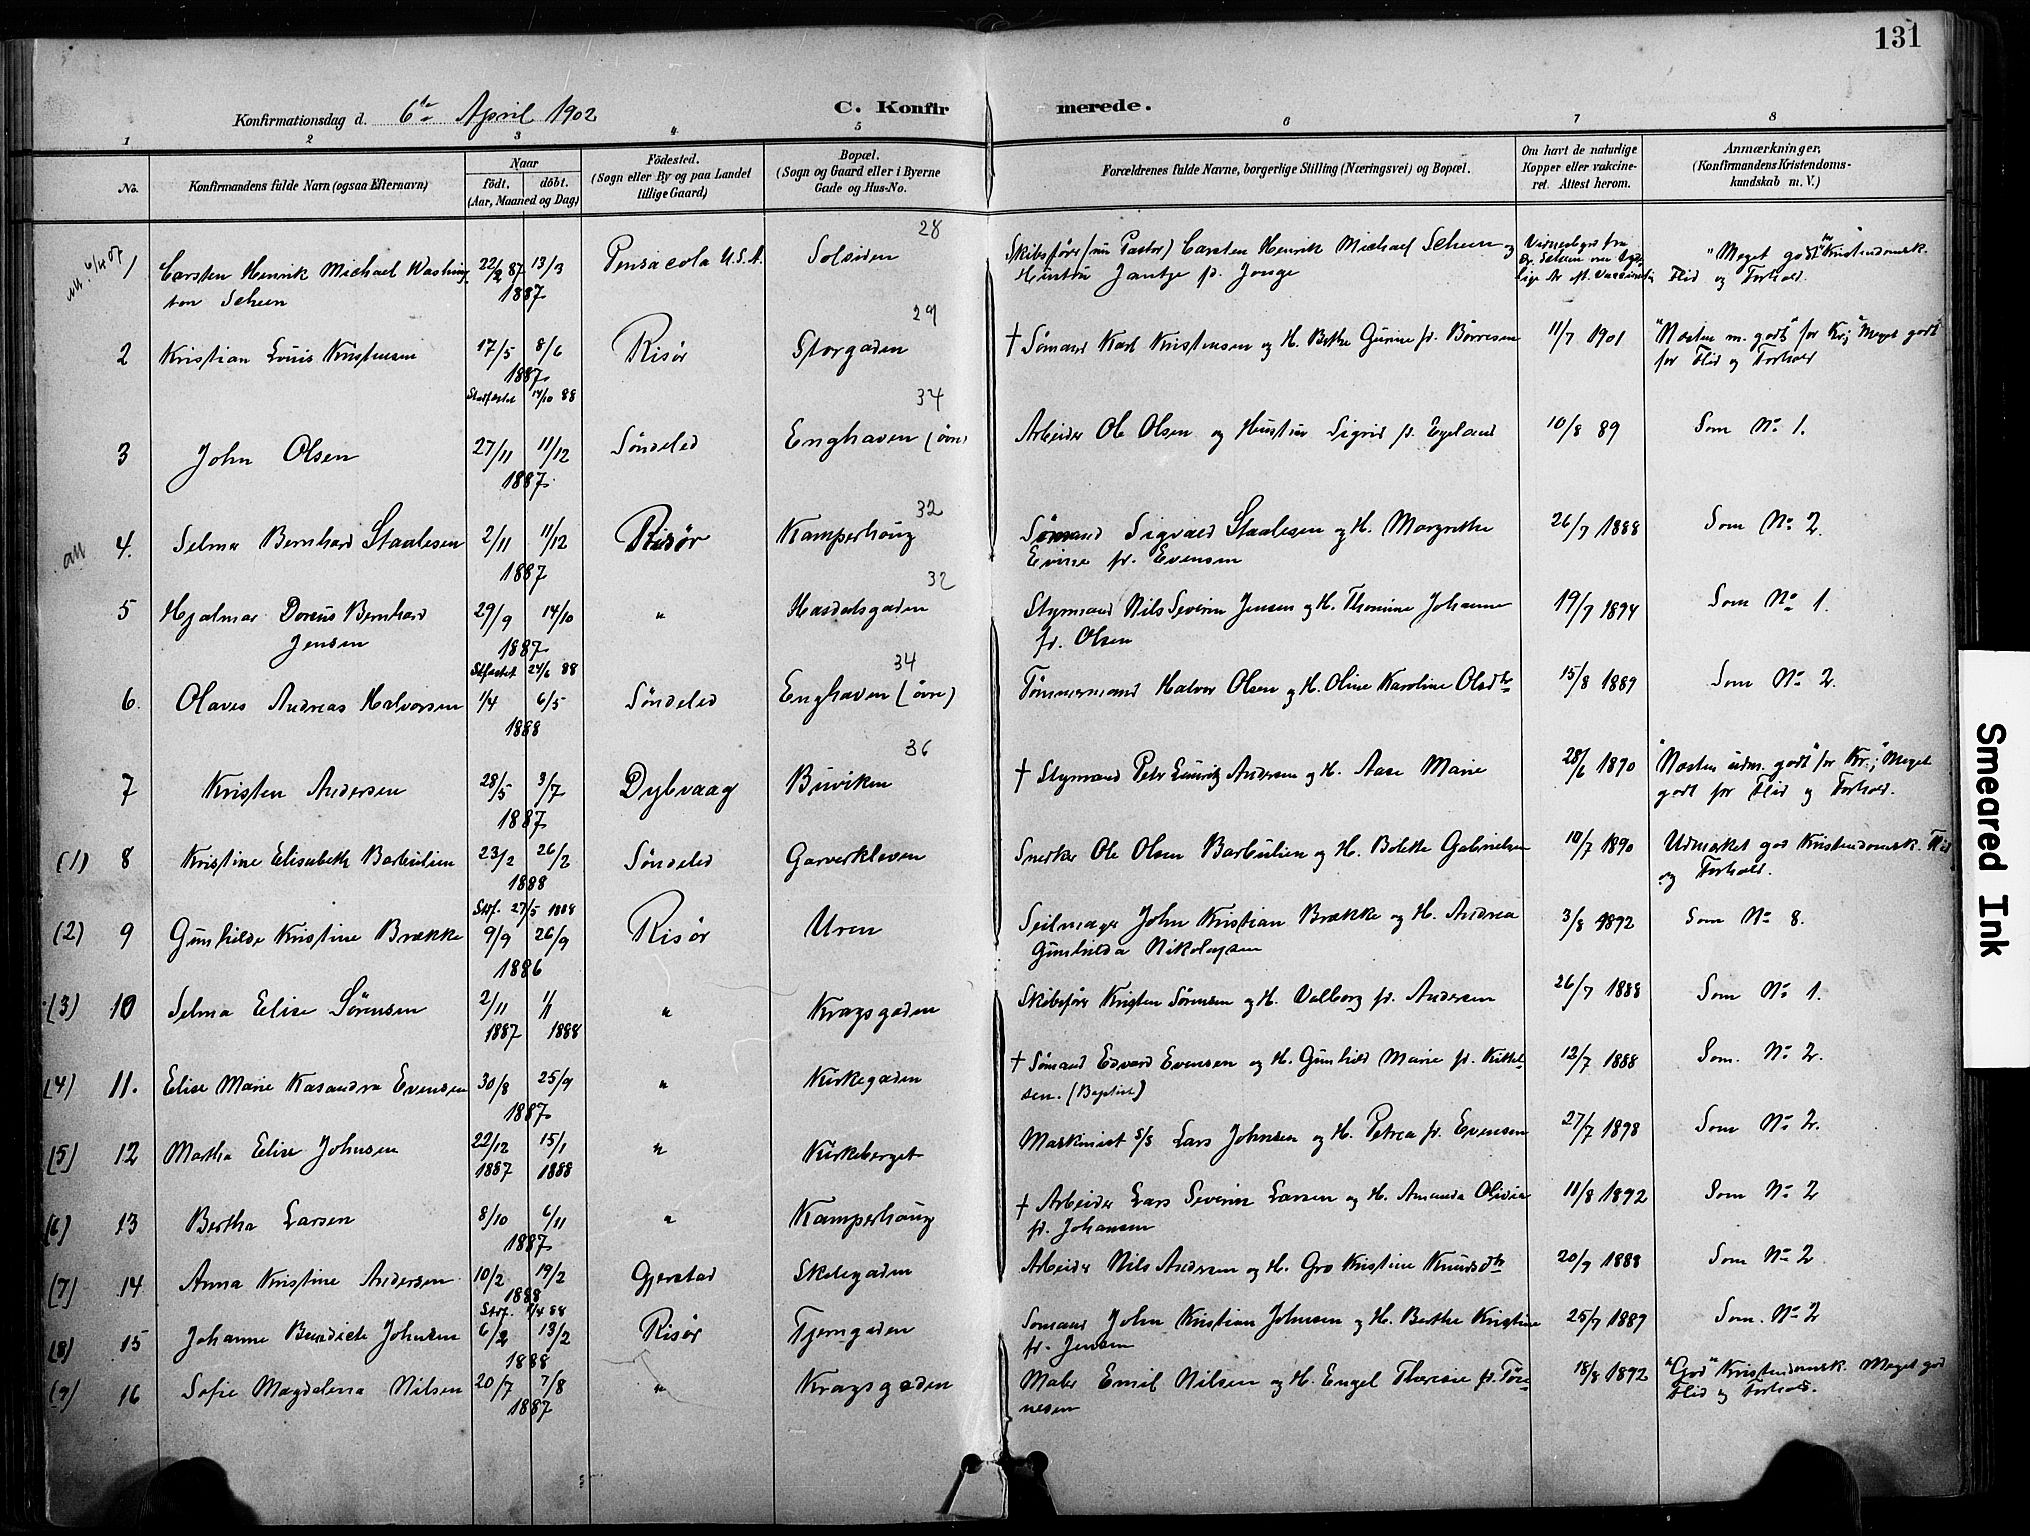 131
Konfirmationsdag d. 6te April 1902
C. Konfirmerede.
1 2 3 4 5 6 7 8
No.
Konfirmandens fulde Navn (ogsaa Efternavn)
Naar
födt. döbt.
(Aar, Maaned og Dag)
Födested.
(Sogn eller By og paa Landet
tillige Gaard)
Bopæl.
(Sogn og Gaard eller i Byerne
Gade og Hus-No.
Forældrenes fulde Navne, borgerlige Stilling (Næringsvei) og Bopæl.
Om havt de naturlige
Kopper eller vakcine-
ret. Attest herom.
Anmærkninger,
(Konfirmandens Kristendoms-
kundskab m. V.)
28
1 Carsten Henrik Michael Washing- 22/2 87 13/3 Pensacola U.S.A. Solsiden Skibsfører (nu Pastor) Carsten Henrik Michael Scheen og "Meget godt" Kristendomsk.
ton Scheen 1887 Hustru Jantje f. Jonge Flid og Forhold.
29
2 Kristian Louis Kristensen 17/5 8/6 Risør Storgaden † Sömand Karl Kristensen og H. Berthe Gurine f. Börresen 11/7 1901 "Næsten m. godt" for Kr., "Meget godt"
1887 for Flid og Forhold
34
3 John Olsen 27/11 11/12 Söndeled Enghaven (övre) Arbeider Ole Olsen og Hustru Sigrid f. Egeland 10/8 89 Som No 1.
1887
32
4. Selma Bernhard Staalesen 2/11 11/12 Risør Kamperhaug Sömand Sigvald Staalesen og H. Margrethe 26/7 1888 Som No 2.
1887 Evine f. Evensen
32
5 Hjalmar Dorius Bernhard 29/9 14/10 " Hasdalsgaden Styrmand Nils Severin Jensen og H. Thomine Johanne 19/7 1894 Som No 1.
Jensen 1887 f. Olsen
Stfæstet 24/6 88 34
6. Olaves Andreas Halvorsen 1/4 6/5 Söndeled Enghaven (övre) Tömmermand Halvor Olsen og H. Oline Karoline Olsdtr 15/8 1889 Som No 2.
1888
36
7 Kristen Andersen 28/5 3/7 Dybvaag Buviken † Styrmand Peter Lauritz Andersen og H. Aase Marie 28/6 1890 "Næsten udm. godt" for Kr., "Meget
1887 godt for Flid og Forhold.
(1) 8 Kristine Elisabeth Barbulien 23/2 26/2 Söndeled Garverkleven Snerker Ole Olsen Barbulien og H. Bolette Gabrielsen 10/7 1890 Udmerket god Kristendomsk. Flid
1888 og Forhold.
Stf. 27/5 1888
(2) 9 Gunhilde Kristine Brække 9/9 26/9 Risör Uren Seilmager John Kristian Brække og H. Andrea 3/8 1892 Som No 8.
1886 Gunhilda Nikolaysen
(3) 10 Selma Elise Sörensen 2/11 1/1 " Kragsgaden Skibsförer Kristen Sörensen og H. Valborg f. Andersen 26/7 1888 Som No 1.
1887 1888
(4) 11. Elise Marie Kasandra Evensen 30/8 25/9 " Kirkegaden † Sömand Edvard Evensen og H. Gunhild Marie f. Kittel- 12/7 1888 Som. No 2.
1887 sen. (Baptist)
(5) 12 Martha Elise Johnsen 22/12 15/1 " Kirkeberget Maskinist S/S Lars Johnsen og H. Petrea f. Evensen 27/7 1898 Som No 2.
1887 1888
(6) 13 Bertha Larsen 8/10 6/11 " Kamperhaug † Arbeider Lars Severin Larsen og H. Amanda Olivia 11/8 1892 Som No 2
1887 f. Johansen
(7) 14 Anna Kristine Andersen 10/2 19/2 Gjerstad Skolegaden Arbeider Nils Andersen og H. Gro Kristine Knudsdtr 20/9 1888 Som No 2
1888
(8) 15 Johanne Benedicte Johnsen 6/2 13/2 Risör Tjerngaden Sömand John Kristian Johnsen og H. Berthe Kristine 25/7 1889 Som. No 2
1888 f. Jensen
(9) 16 Sofie Magdalena Nilsen 20/7 7/8 " Kragsgaden Maler Emil Nilsen og H. Engel Therese f. Tön- 18/8 1892 "God" Kristendomsk. Meget god
1887 nesen Flid og Forhold.
Smeared Ink